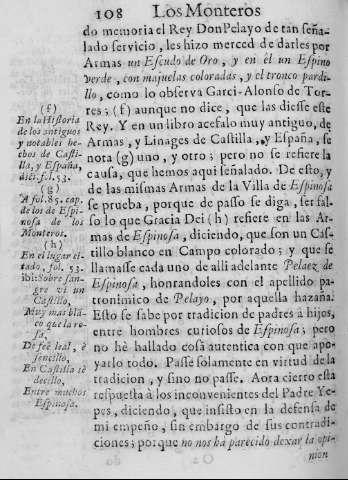 108 Los Monteros
do memoria el Rey Don Pelayo de tan seña-
lado servicio, les hizo merced de darles por
Armas un Escudo de Oro, y en èl un Espino
verde, con majuelas coloradas, y el tronco pardi-
llo, como lo observa Garci-Alonso de Tor-
res; (f) aunque no dice, que las diesse este
Rey. Y en un libro acefalo muy antiguo, de
Armas, y Linages de Castilla, y España, se
nota (g) uno, y otro; pero no se refiere la
causa, que hemos aqui señalado. De esto, y
de las mismas Armas de la Villa de Espinosa
se prueba, porque de passo se diga, ser fal-
so lo que Gracia Dei (h) refiere en las Ar-
mas de Espinosa, diciendo, que son un Cas-
tillo blanco en Campo colorado; y que se
llamasse cada uno de alli adelante Pelaez de
Espinosa, honrandoles con el apellido pa-
tronimico de Pelayo, por aquella hazaña.
Esto se sabe por tradicion de padres à hijos,
entre hombres curiosos de Espinosa; pero
no hè hallado cosa autentica con que apo-
yarlo todo. Passe solamente en virtud de la
tradicion, y sino no passe. Aora cierro esta
respuesta à los inconvenientes del Padre Ye-
pes, diciendo, que insisto en la defensa de
mi empeño, sin embargo de sus contradi-
ciones; porque no nos hà parecido dexar la opi-
nion
(f)
En la Historia
de los antiguos
y notables he-
chos de Casti-
lla, y España,
dict. fol. 53.
(g)
A fol. 85. cap.
de los de Espi-
nosa de los
Monteros.
(h)
En el lugar ci-
tado, fol. 53.
ibi: Sobre san-
gre vi un
Castillo,
Muy mas blã-
co que la ro-
sa,
De feè leal, è
sencillo,
En Castilla re
decillo,
Entre muchos
Espinosa.